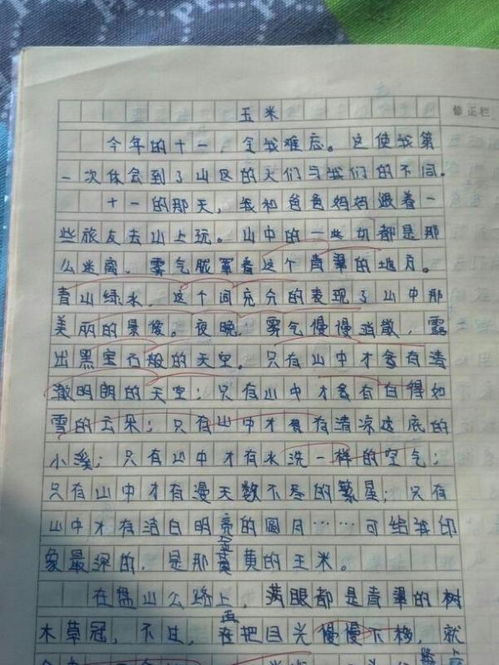 修正栏
玉米
今年的十一，令我难忘。这使我第
一次体会到了山区的人们与我们的不同。
十一的那天，我和爸爸妈妈跟着一
些旅友去山上玩。山中的一些切都是那
么迷离，雾气胧罩着这个青翠的地方。
青山绿水，这个词充分的表现了山中那
美丽的景像。夜晚，雾气慢慢消散，露
出黑宝石般的天空。只有山中才会有清
澈明朗的天空；只有山中才会有白得如
雪的云朵；只有山中才会有清凉这底的
小溪；只有山中才有水洗一样的空气；
只有山中才有漫天数不尽的繁星；只有
山中才有洁白明亮的圆月……可给我印
象最深的，是那金黄的玉米。
在盘山公路上，满眼都是青翠的树
木草冠，不过，再把目光慢慢下移，就